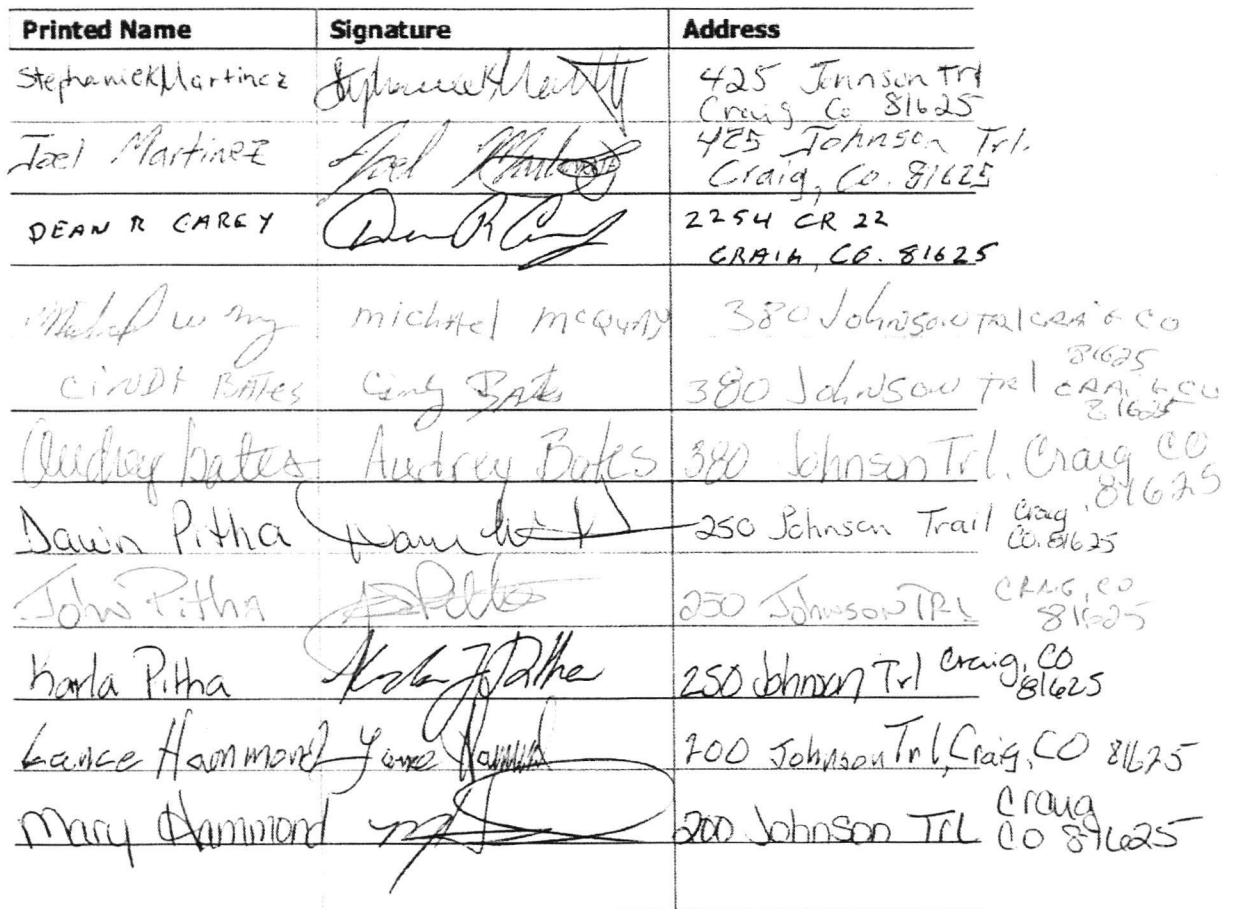 Printed Name Signature Address
Stephanie K Martinez 425 Johnson Trl
Craig Co 81625
Joel Martinez Joel 425 Johnson Trl.
Craig, Co. 81625
DEAN R CAREY Dean R Carey 2254 CR 22
CRAIG, CO. 81625
michael mcQuay 380 Johnson TRl CRAIG CO
81625
CINDY BATes Cindy BATes 380 Johnson TRl CRAIG CO
81625
Audrey bates Audrey Bates 380 Johnson Trl. Craig CO
81625
Dawn Pitha 250 Johnson Trail Craig,
CO. 81625
John Pitha 250 Johnson TRL CRAIG, CO
81625
Karla Pitha Karla J Pitha 250 Johnson Trl Craig, CO
81625
Lance Hammond Lance Hammond 200 Johnson Trl, Craig, CO 81625
Mary Hammond 200 Johnson Trl Craig
CO 81625